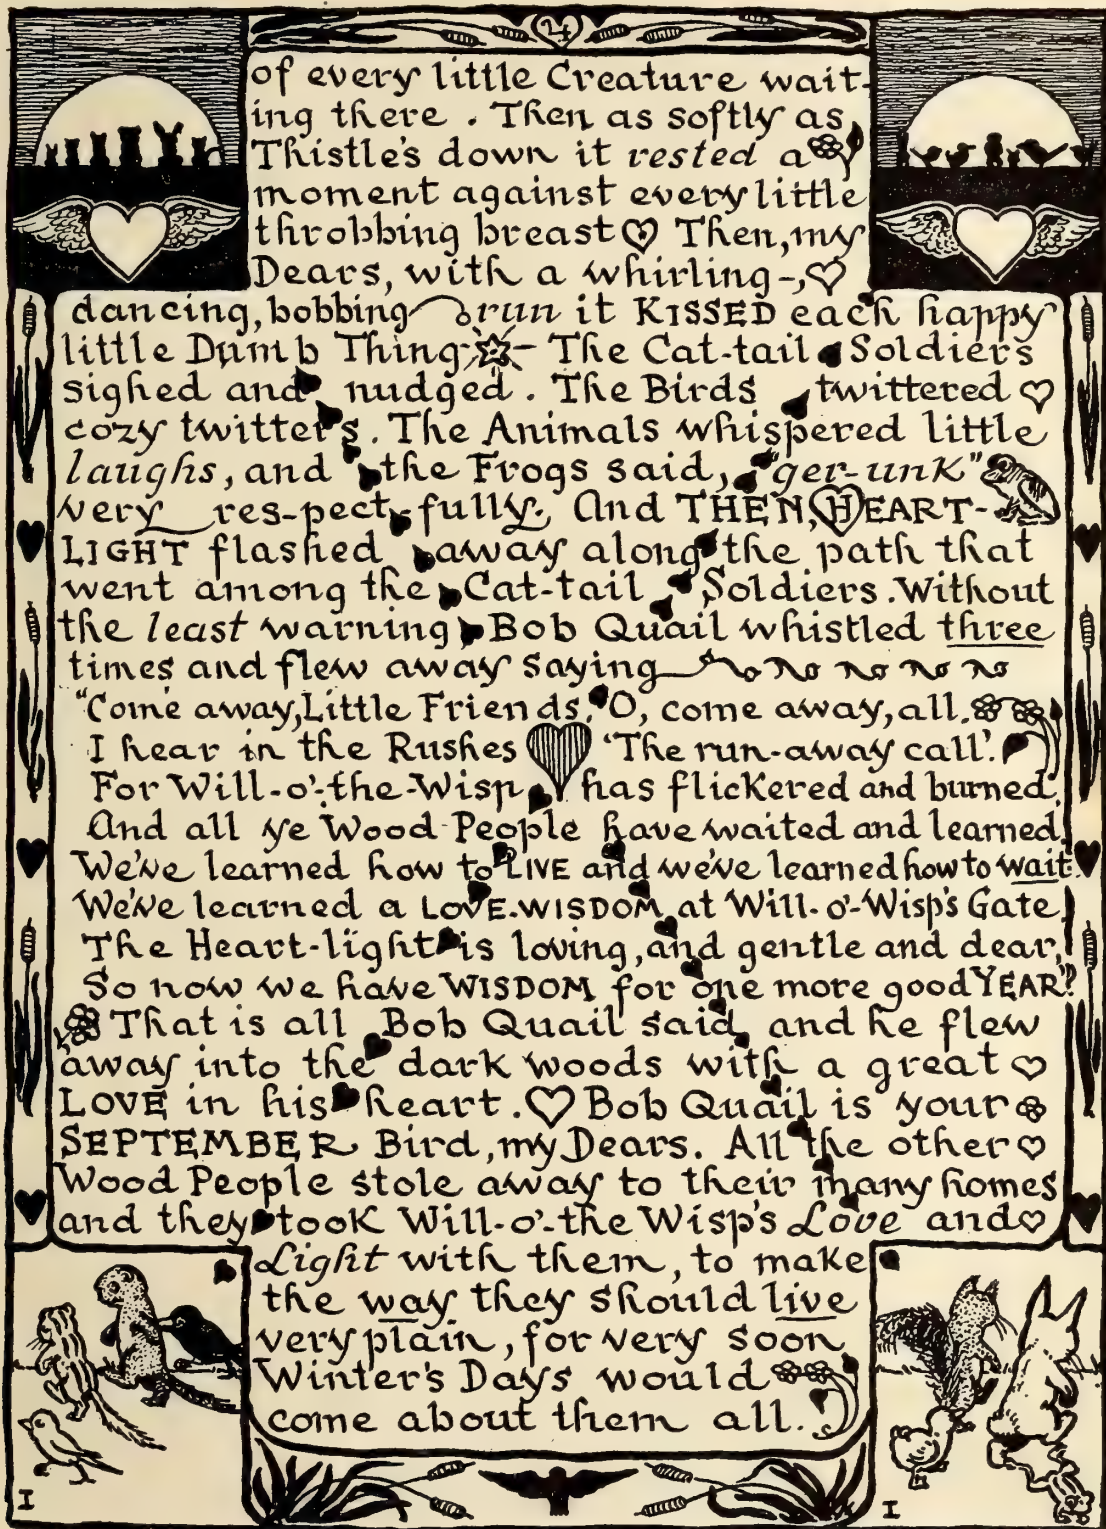 4
of every little Creature wait-
ing there. Then as softly as
Thistle's down it rested a
moment against every little
throbbing breast Then, my
Dears, with a whirling-,
dancing, bobbing run it KISSED each happy
little Dumb Thing - The Cat-tail Soldiers
sighed and nudged. The Birds twittered
cozy twitters. The Animals whispered little
laughs, and the Frogs said, "ger-unk"
very res-pect-fully. And THEN, HEART-
LIGHT flashed away along the path that
went among the Cat-tail Soldiers. Without
the least warning Bob Quail whistled three
times and flew away saying
"Come away, Little Friends, O, come away, all.
I hear in the Rushes 'The run-away call'.
For Will-o'-the-Wisp has flickered and burned,
And all ye Wood People have waited and learned.
We've learned how to LIVE and we've learned how to wait.
We've learned a LOVE-WISDOM at Will-o'-Wisp's Gate,
The Heart-light is loving, and gentle and dear,
So now we have WISDOM for one more good YEAR."
That is all Bob Quail said, and he flew
away into the dark woods with a great
LOVE in his heart. Bob Quail is your
SEPTEMBER Bird, my Dears. All the other
Wood People stole away to their many homes
and they took Will-o'-the Wisp's Love and
Light with them, to make
the way they should live
very plain, for very soon,
Winter's Days would
come about them all.
I
I